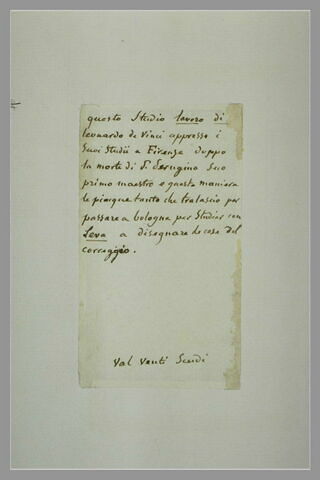 questo Studio lavoro di
leonardo da vinci appresso i
suoi Studii a Firenze doppo
la morte di P. Perugino suo
primo maestro e questa maniera
le piacque tanto che tralascio per
passare a bologna per Studiar con
Leva a disegnare le cose del
correggéo.
Val Venti Scudi